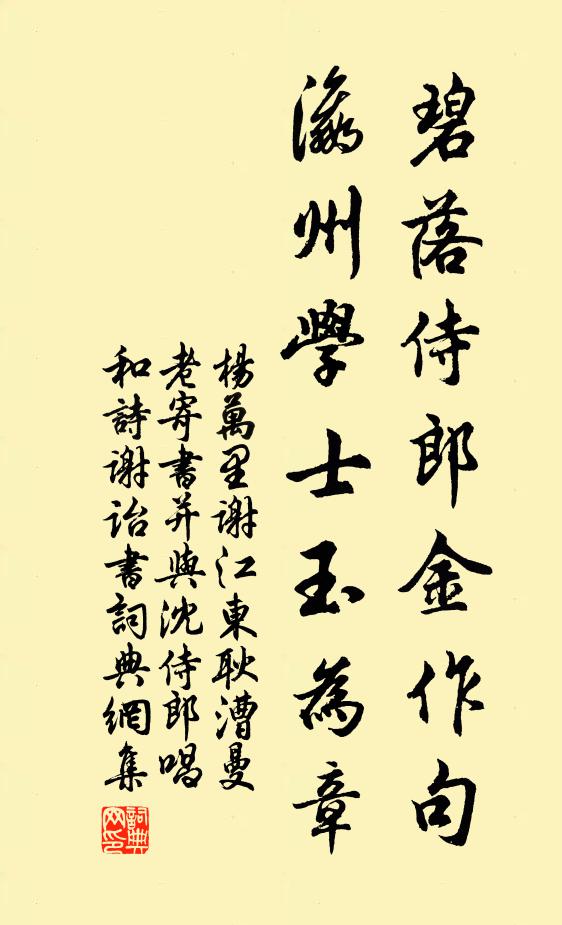 碧落侍郎金作句
瀛州學士玉為章
楊萬里謝江東耿漕曼
老寄書并與沈侍郎唱
和詩謝詒書詞典網集
詞典網印